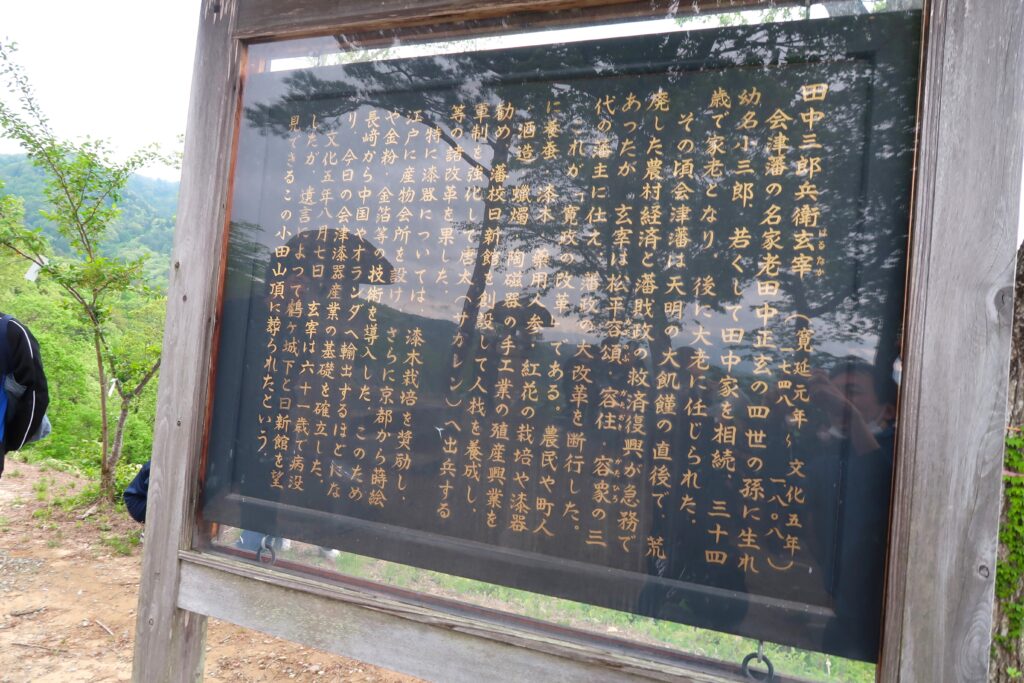 田中三郎兵衛玄宰(はるなか)(寛延元年~文化五年)
一七四八 一八〇八
会津藩の名家老田中正玄の四世の孫に生れ
幼名小三郎、若くして田中家を相続、三十四
歳で家老となり 後に大老に任じられた。
その頃会津藩は天明の大飢饉の直後で、荒
廃した農村経済と藩財政の救済復興が急務で
あったが 玄宰は松平容頌、容住、容衆の三
代の藩主に仕え、藩政の大改革を断行した。
これが「寛政の改革」である。農民や町人
に養蚕 漆木 薬用人参 紅花の栽培や漆器
酒造 蠟燭 陶磁器の手工業の殖産興業を
勧め 藩校日新館を創設して人材を養成し、
軍制を強化して唐太(サガレン)へ出兵する
等の諸改革を果した。
特に漆器については、漆木栽培を奨励し、
江戸に産物会所を設け さらに京都から蒔絵
や金粉・金箔等の技術を導入した。このため
長崎から中国やオランダへ輸出するほどにな
り 今日の会津漆器産業の基礎を確立した。
文化五年八月七日 玄宰は六十一歳で病没
したが、遺言によって鶴ヶ城下と日新館を望
見できるこの小田山頂に葬られたという。